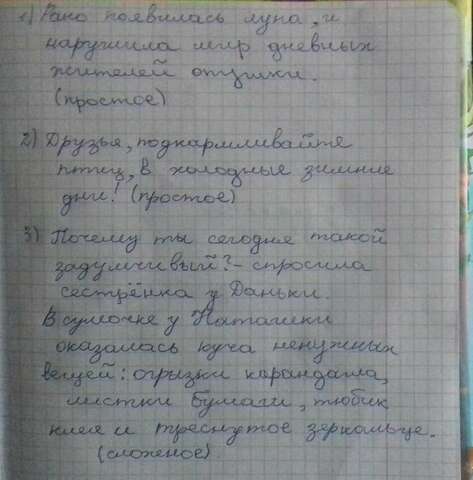 1) Рано появилась луна, и
нарушила мир дневных
жителей опушки.
(простое)
2) Друзья, подкармливайте
птиц, в холодные зимние
дни! (простое)
3) Почему ты сегодня такой
задумчивый? - спросила
сестрёнка у Даньки.
В сумочке у Наташки
оказалась куча ненужных
вещей: огрызки карандаша,
листки бумаги, тюбик
клея и треснутое зеркальце.
(сложное)